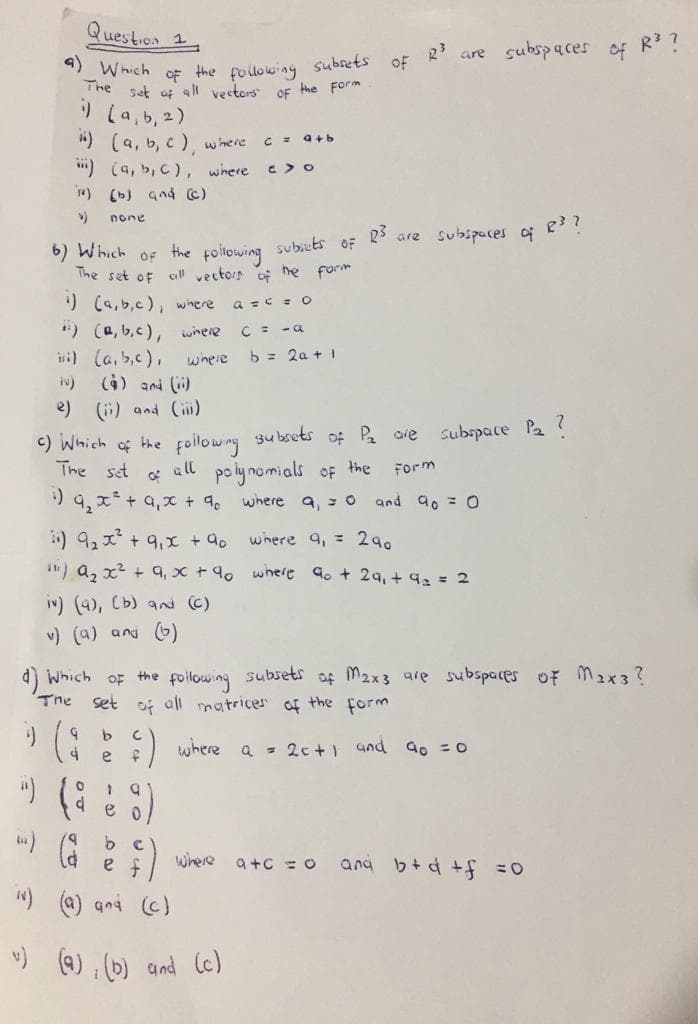 Question 1
a) Which of the following subsets of R³ are subspaces of R³?
The set of all vectors of the form
i) (a,b,2)
ii) (a,b,c), where c = a+b
iii) (a,b,c), where c > 0
iv) (b) and (c)
v) none
b) Which of the following subsets of R³ are subspaces of R³?
The set of all vectors of the form
i) (a,b,c), where a = c = 0
ii) (a,b,c), where c = -a
iii) (a,b,c), where b = 2a + 1
iv) (i) and (ii)
e) (ii) and (iii)
c) Which of the following subsets of P₂ are subspace P₂?
The set of all polynomials of the form
i) a₂x² + a₁x + a₀ where a₁ = 0 and a₀ = 0
ii) a₂x² + a₁x + a₀ where a₁ = 2a₀
iii) a₂x² + a₁x + a₀ where a₀ + 2a₁ + a₂ = 2
iv) (a), (b) and (c)
v) (a) and (b)
d) Which of the following subsets of M₂ₓ₃ are subspaces of M₂ₓ₃?
The set of all matrices of the form
i) (a b c
d e f) where a = 2c+1 and a₀ = 0
ii) (0 1 a
d e 0)
iii) (a b c
d e f) where a+c = 0 and b+d+f = 0
iv) (a) and (c)
v) (a), (b) and (c)